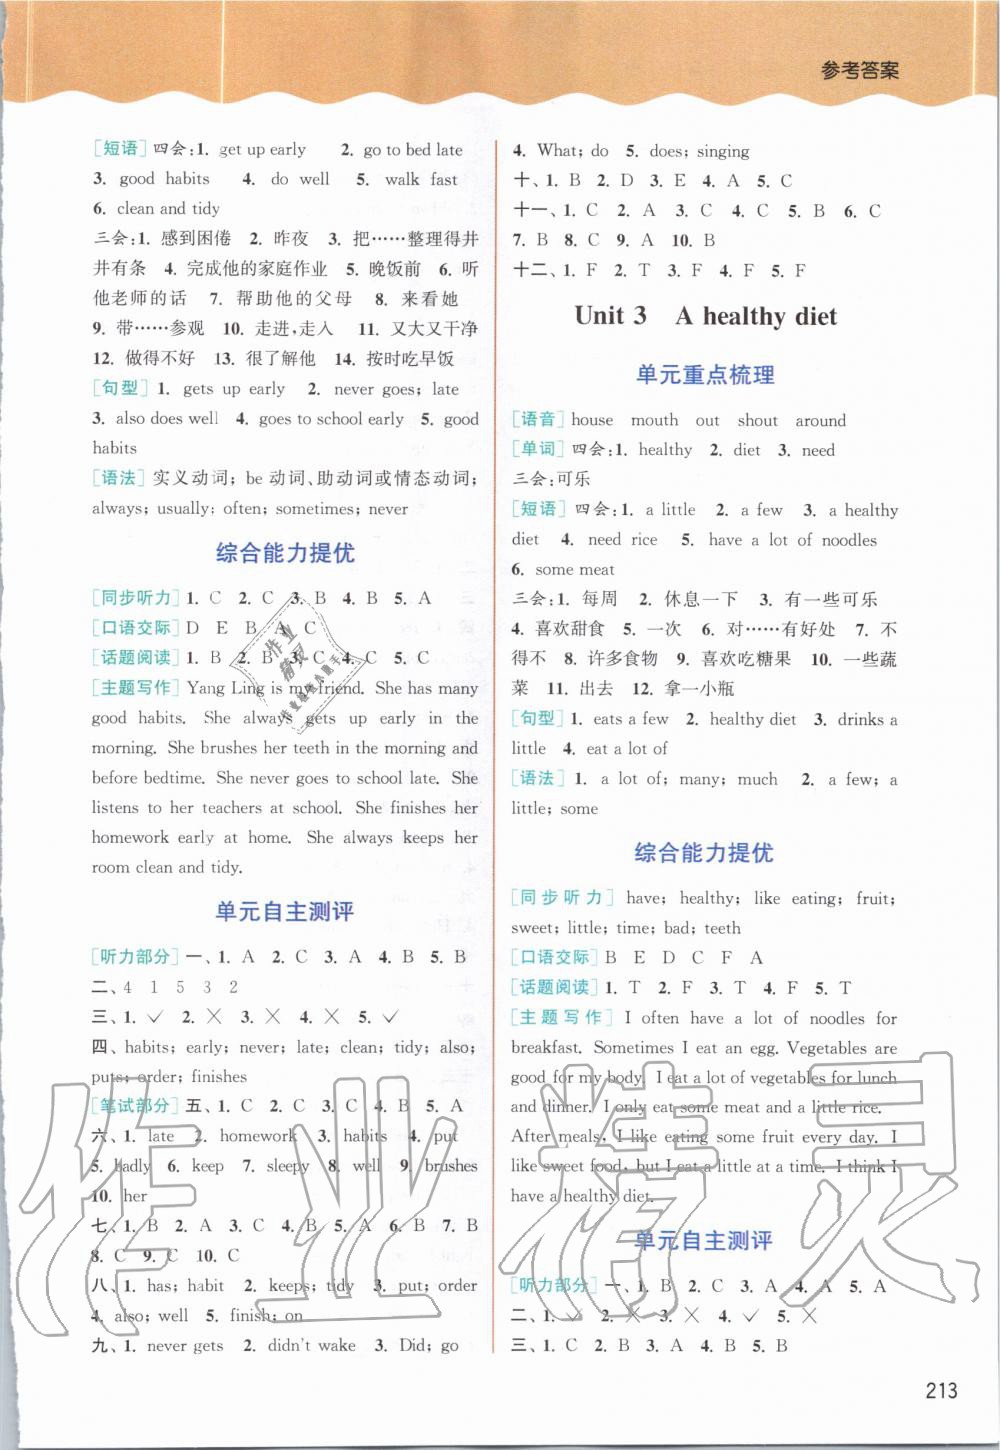 参考答案
[短语] 四会:1. get up early 2. go to bed late
3. good habits 4. do well 5. walk fast
6. clean and tidy
三会:1. 感到困倦 2. 昨夜 3. 把……整理得井
井有条 4. 完成他的家庭作业 5. 晚饭前 6. 听
他老师的话 7. 帮助他的父母 8. 来看她
9. 带……参观 10. 走进,走入 11. 又大又干净
12. 做得不好 13. 很了解他 14. 按时吃早饭
[句型] 1. gets up early 2. never goes; late
3. also does well 4. goes to school early 5. good
habits
[语法] 实义动词; be 动词、助动词或情态动词;
always; usually; often; sometimes; never
综合能力提优
[同步听力] 1. C 2. C 3. B 4. B 5. A
[口语交际] D E B A C
[话题阅读] 1. B 2. B 3. C 4. C 5. C
[主题写作] Yang Ling is my friend. She has many
good habits. She always gets up early in the
morning. She brushes her teeth in the morning and
before bedtime. She never goes to school late. She
listens to her teachers at school. She finishes her
homework early at home. She always keeps her
room clean and tidy.
单元自主测评
[听力部分] 一、1. A 2. C 3. A 4. B 5. B
二、4 1 5 3 2
三、1. ✓ 2. ✕ 3. ✕ 4. ✕ 5. ✓
四、habits; early; never; late; clean; tidy; also;
puts; order; finishes
[笔试部分] 五、1. C 2. C 3. C 4. B 5. A
六、1. late 2. homework 3. habits 4. put
5. badly 6. keep 7. sleepy 8. well 9. brushes
10. her
七、1. B 2. A 3. C 4. B 5. A 6. B 7. B
8. C 9. C 10. C
八、1. has; habit 2. keeps; tidy 3. put; order
4. also; well 5. finish; on
九、1. never gets 2. didn't wake 3. Did; go
4. What; do 5. does; singing
十、1. B 2. D 3. E 4. A 5. C
十一、1. C 2. A 3. C 4. C 5. B 6. C
7. B 8. C 9. A 10. B
十二、1. F 2. T 3. F 4. F 5. F
Unit 3 A healthy diet
单元重点梳理
[语音] house mouth out shout around
[单词] 四会:1. healthy 2. diet 3. need
三会:可乐
[短语] 四会:1. a little 2. a few 3. a healthy
diet 4. need rice 5. have a lot of noodles
6. some meat
三会:1. 每周 2. 休息一下 3. 有一些可乐
4. 喜欢甜食 5. 一次 6. 对……有好处 7. 不
得不 8. 许多食物 9. 喜欢吃糖果 10. 一些蔬
菜 11. 出去 12. 拿一小瓶
[句型] 1. eats a few 2. healthy diet 3. drinks a
little 4. eat a lot of
[语法] 1. a lot of; many; much 2. a few; a
little; some
综合能力提优
[同步听力] have; healthy; like eating; fruit;
sweet; little; time; bad; teeth
[口语交际] B E D C F A
[话题阅读] 1. T 2. F 3. T 4. F 5. T
[主题写作] I often have a lot of noodles for
breakfast. Sometimes I eat an egg. Vegetables are
good for my body. I eat a lot of vegetables for lunch
and dinner. I only eat some meat and a little rice.
After meals, I like eating some fruit every day. I
like sweet food, but I eat a little at a time. I think I
have a healthy diet.
单元自主测评
[听力部分] 一、1. B 2. C 3. A 4. A 5. A
二、1. ✓ 2. ✕ 3. ✕ 4. ✓ 5. ✕
三、1. C 2. A 3. B 4. C 5. B
213
作业精灵